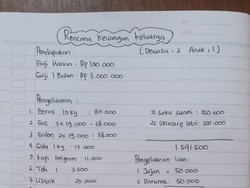 Rencana Keuangan Keluarga
Pendapatan : (Dewasa : 2 Anak : 1)
Gaji Harian : Rp 100.000
Gaji 1 Bulan : Rp 3.000.000
Pengeluaran :
1. Beras 10 kg : 110.000
2. Gas 3 x 19.000 = 58.000
3. Galon 2 x 19.000 = 38.000
4. Gula 1 kg : 17.000
5. Kopi : 11.000
6. Teh 1 3.500
7. Listrik : 25.000
21 Saku Suami : 150.000
22. Skincare Istri : 100.000
1.591.500
Pengeluaran Lain :
1. Jajan : 50.000
2. Darurat : 50.000